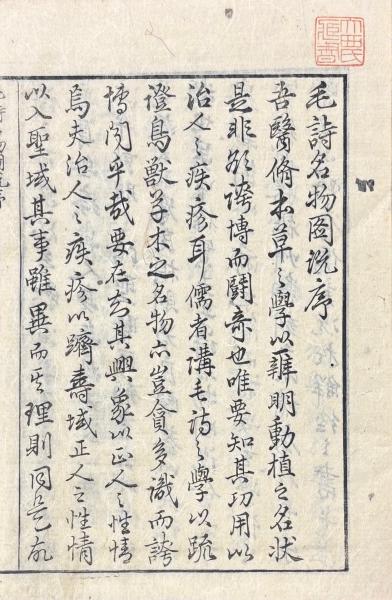 毛詩名物圖說序
吾醫脩本草之學以辨明動植之名狀
是非欲誇博而鬪奇也唯要知其功用以
治人之疾疹耳儒者講毛詩之學以疏
證鳥獸草木之名物亦豈貪多識而誇
博聞乎哉要在知其興象以正人之性情
焉夫治人之疾疹以躋壽域正人之性情
以入聖域其事雖異而其理則同是故